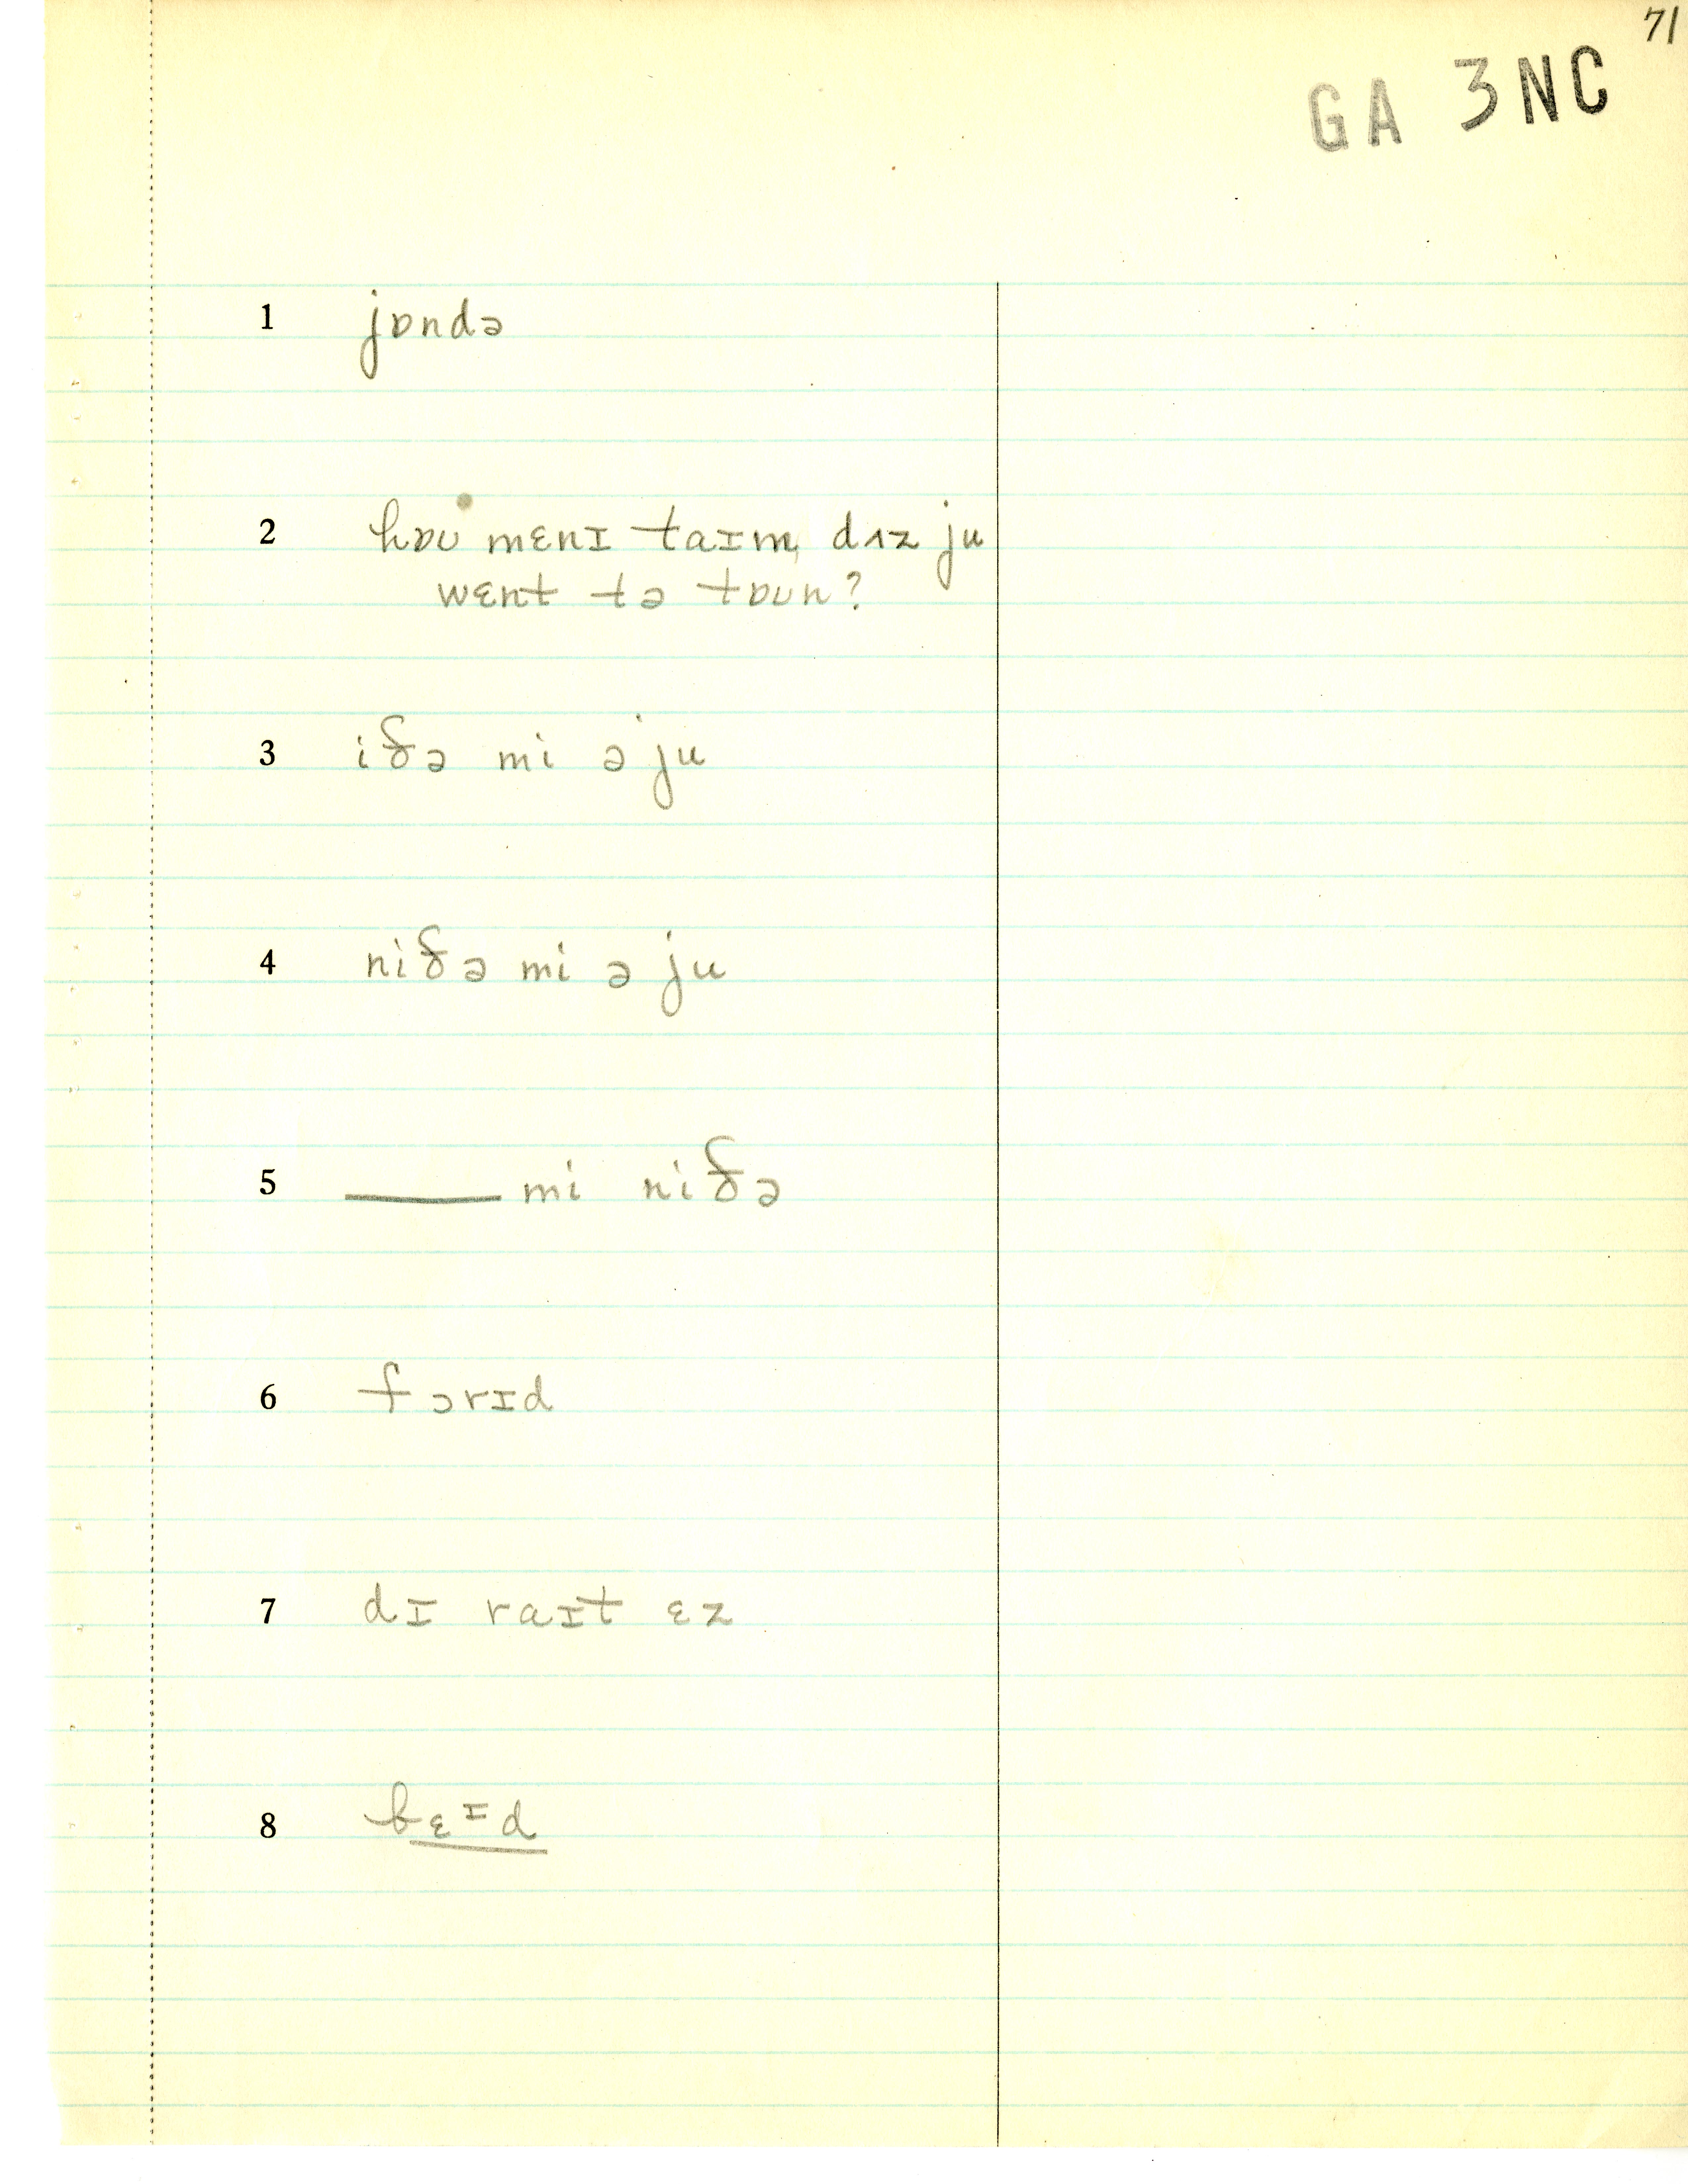 71
GA 3NC
1 jɒndə
2 hɒʊ mɛnɪ taɪm dɪz ju
wɛnt tə tɒʊn?
3 iðə mi ə ju
4 niðə mi ə ju
5 ____ mi niðə
6 fɔrɪd
7 dɪ raɪt ɛz
8 bɛɪd